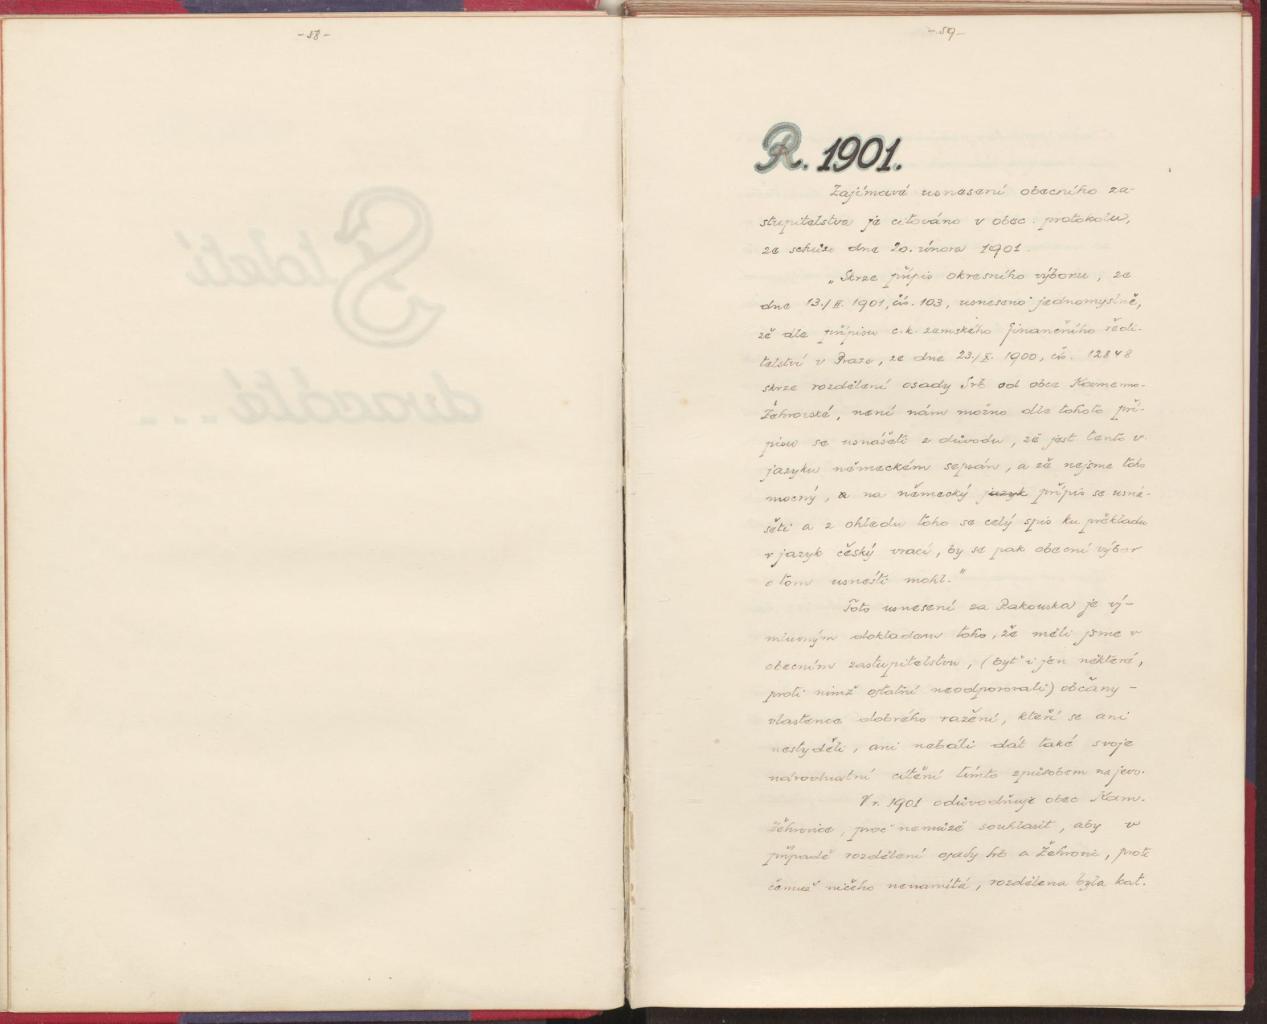 -58-
-59-
R. 1901.
Zajímavé usnesení obecního za-
stupitelstva je citováno v obec. protokolu,
ze schůze dne 20. února 1901.
"Skrze přípis okresního výboru, ze
dne 13./II. 1901, čís. 103, usneseno jednomyslně,
zě dle přípisu c. k. zemského finančního ředi-
telství v Praze, ze dne 23./X. 1900, čís. 12848
skrze rozdělení osady Srb od obce Kamenno-
Žehrovské, není nám možno dle tohoto pří-
pisu se usnášeti z důvodu, zě jest tento v
jazyku německém sepsán, a zě nejsme toho
mocný, a na německý jazyk přípis se usná-
šeti a z ohledu toho se celý spis ku překladu
v jazyk český vrací, by se pak obecní výbor
o tom usnésti mohl."
Toto usnesení za Rakouska je vý-
mluvným dokladem toho, že měli jsme v
obecním zastupitelstvu, (byť i jen některé,
proti nimž ostatní neodporovali) občany -
vlastence dobrého ražení, kteří se ani
nestyděli, ani nebáli dát také svoje
národnostní cítění tímto způsobem najevo.
V r. 1901 odůvodňuje obec Kam.
Žehrovice, proč nemůzě souhlasit, aby v
případě rozdělení osady Srb a Žehrovic, proti
čemuž ničeho nenamítá, rozdělena byla kat.